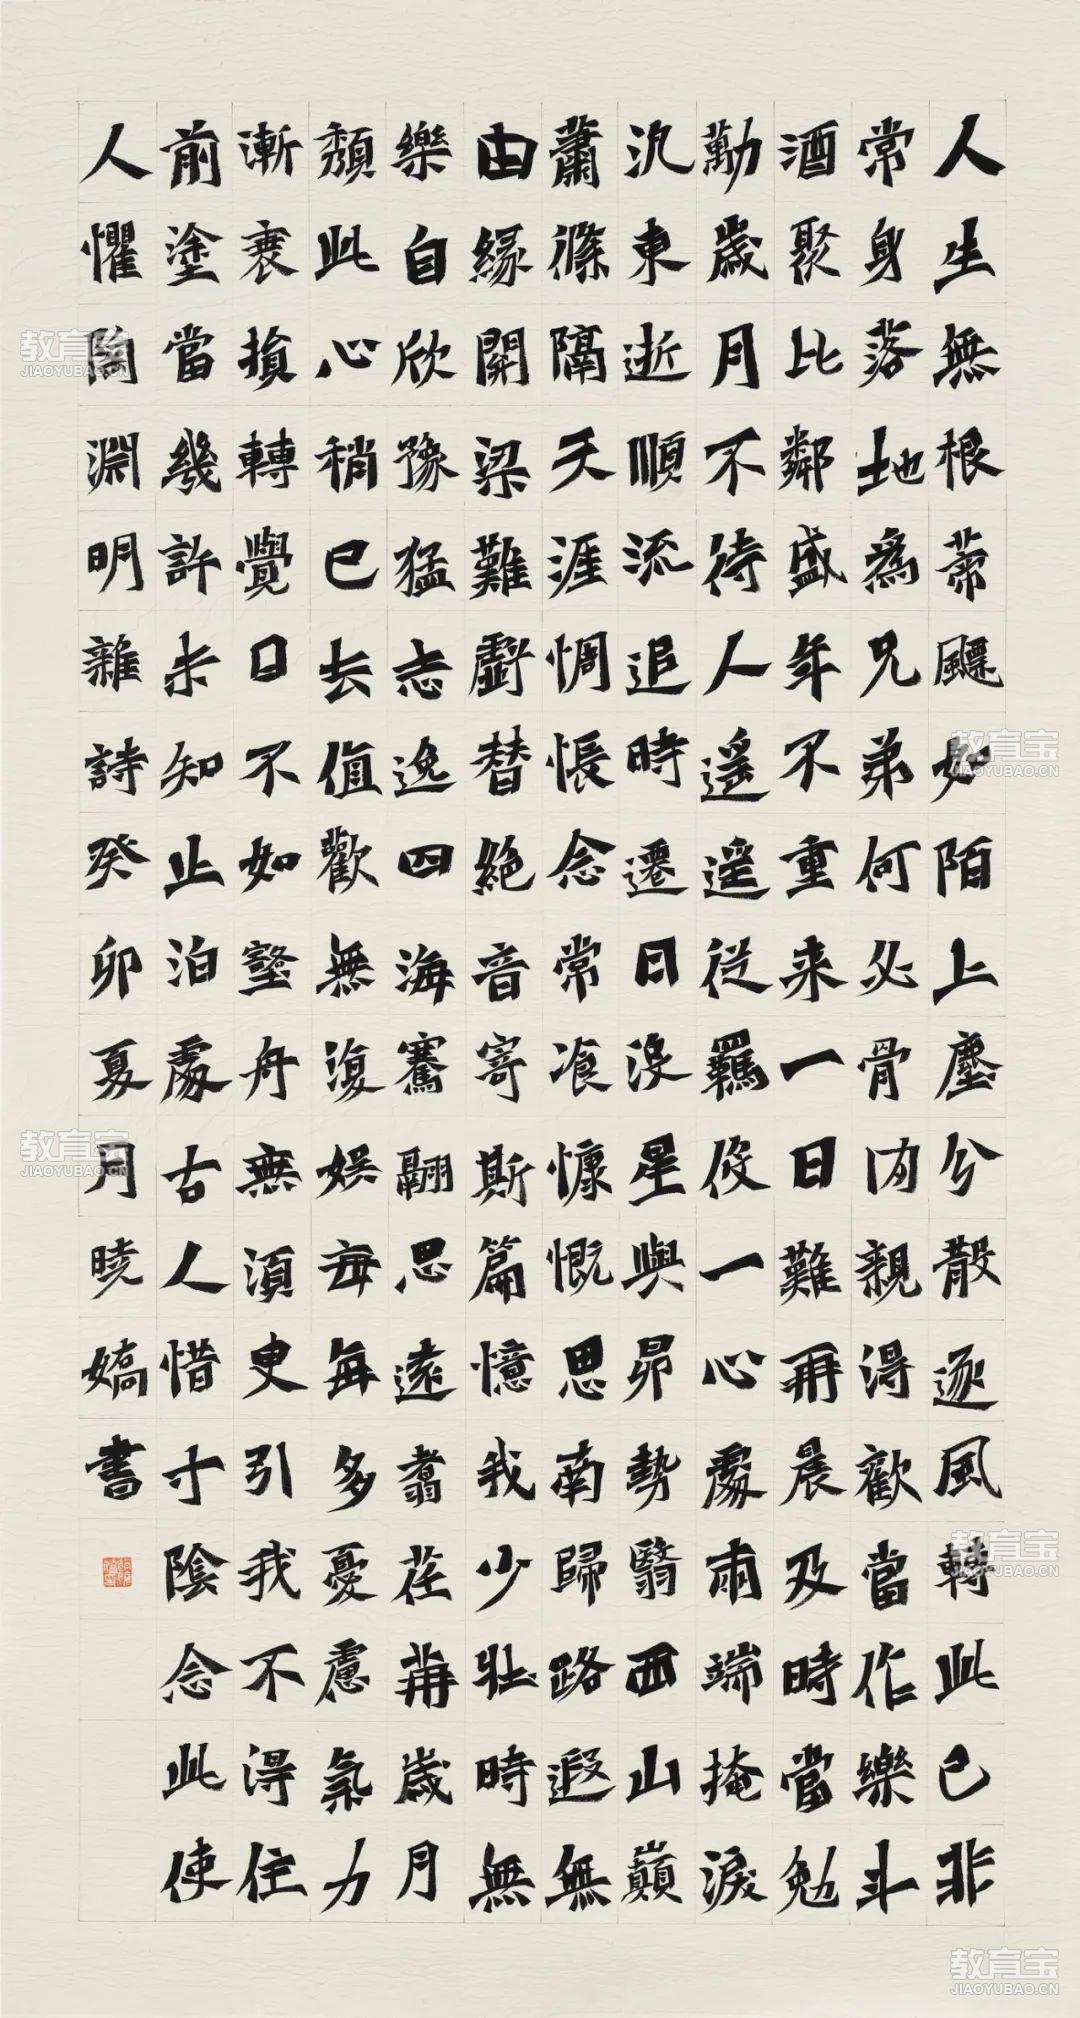 人生無根蒂飃如陌上塵分散逐風轉此已非
常身落地為兄弟何必骨肉親得歡當作樂斗
酒聚比鄰盛年不重来一日難再晨及時當勉
勤歲月不待人遥遥從羈役一心處兩端掩淚
汎東逝順流追時遷日沒星與昴勢翳西山巔
蕭條隔天涯惆悵念常飡慷慨思南歸路遐無
由緣關梁難虧替絕音寄斯篇憶我少壯時無
樂自欣豫猛志逸四海騫翮思遠翥荏苒歲月
頹此心稍已去值歡無復娛每每多憂慮氣力
漸衰損轉覺日不如壑舟無須臾引我不得住
前塗當幾許未知止泊處古人惜寸陰念此使
人懼陶淵明雜詩癸卯夏月曉嬌書
教育宝
JIAOYUBAO.CN
教育宝
JIAOYUBAO.CN
教育宝
JIAOYUBAO.CN
教育宝
JIAOYUBAO.CN
教育宝
JIAOYUBAO.CN